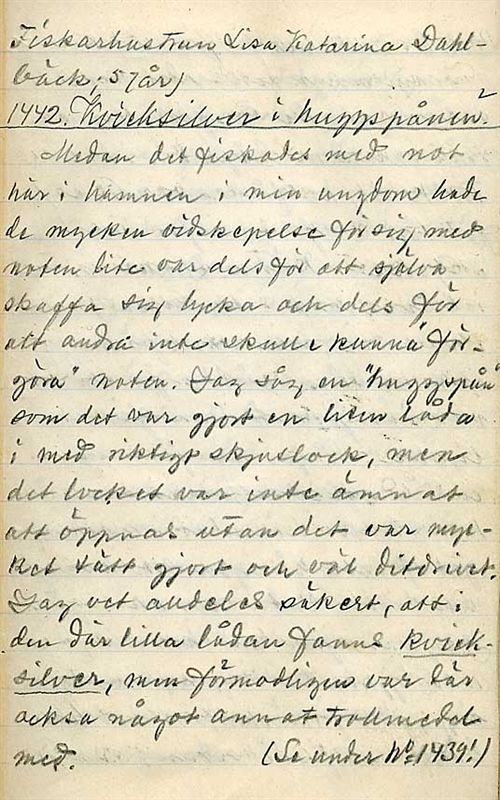 Fiskarhustrun Lisa Katarina Dahl-
bäck, 57 år)
1442. Kvicksilver i huggspånen. 2
Medan det fiskades med not
här i hamnen i min ungdom hade
de mycken vidskepelse för sig med
noten lite var dels för att själva
skaffa sig lycka och dels för
att andra inte skulle kunna "för-
göra" noten. Jag såg en "huggspån"
som det var gjort en liten låda
i med riktigt skjutlock, men
det locket var inte ämnat
att öppnas utan det var myc-
ket tätt gjort och väl ditdrivet.
Jag vet alldeles säkert, att i
den där lilla lådan fanns kvick-
silver, men förmodligen var där
också något annat trollmedel
med. (Se under No 1439!)